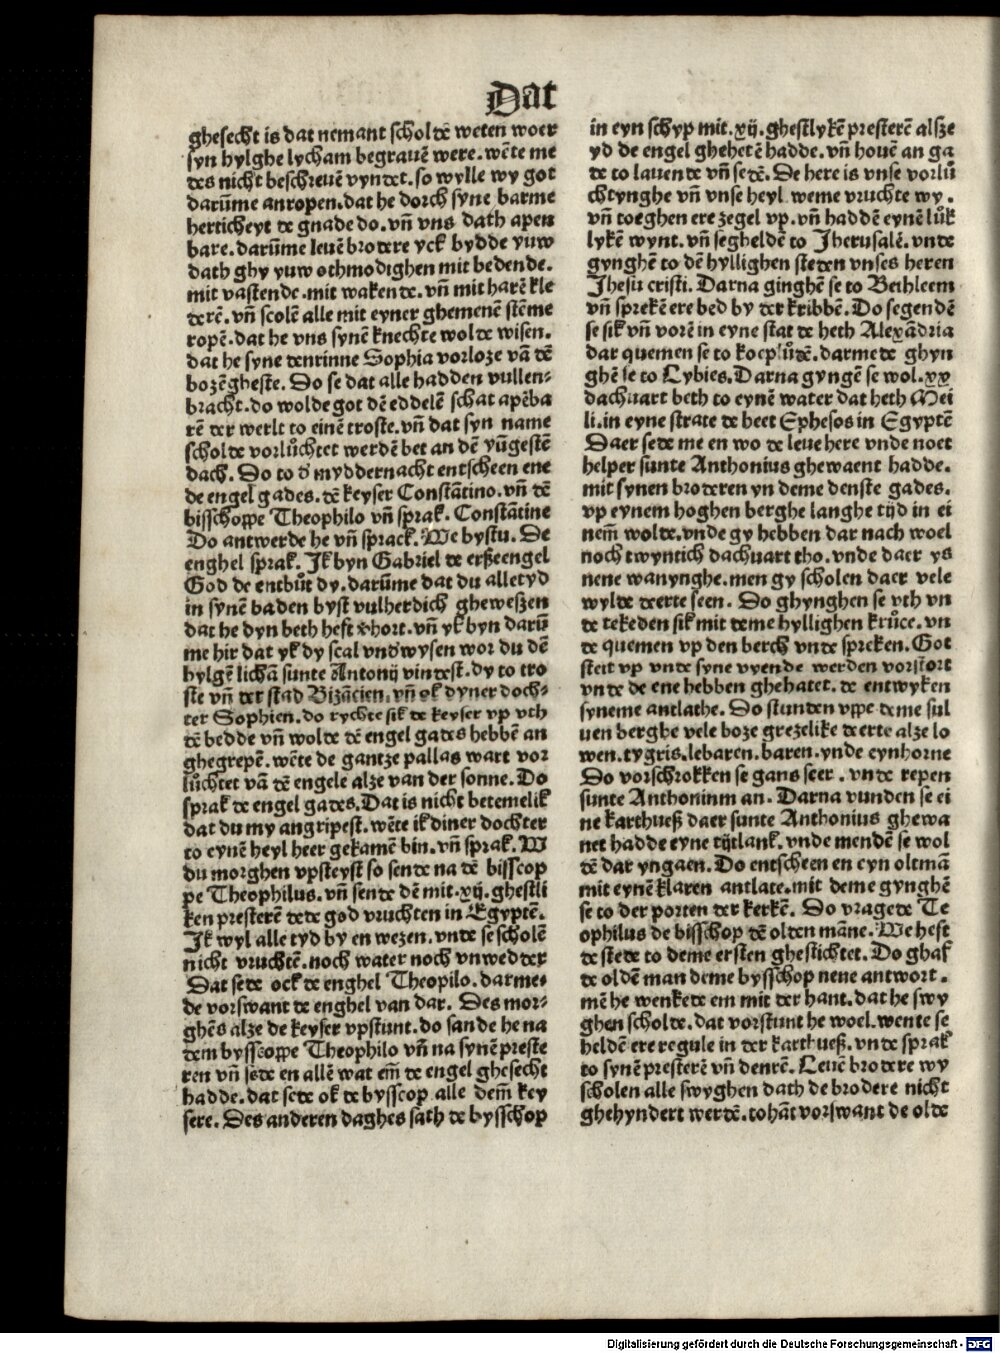 Dat
ghesecht is dat nemant scholde weten woer
syn hylghe lycham begrauē were. wēte me
des nicht beschreuē vyndet. so wylle wy got
darūme anropen. dat he dorch syne barme
herticheyt de gnade do. vn̄ vns dath apen
bare. darūme leuē brodere yck bydde yuw
dath ghy yuw othmodighen mit bedende.
mit vastende. mit wakende. vn̄ mit harē kle
derē. vn̄ scolē alle mit eyner ghemenē stēme
ropē. dat he vns synē knechte wolde wisen.
dat he syne denrinne Sophia vorloze vā dē
bozē gheste. Do se dat alle hadden vullen-
bracht. do wolde got dē eddelē schat apēba
rē der werlt to einē troste. vn̄ dat syn name
scholde vorlůchtet werdē bet an dē yūgestē
dach. Do to d' myddernacht entscheen ene
de engel gades. dē keyser Constātino. vn̄ dē
bisschoppe Theophilo vn̄ sprak. Constātine
Do antwerde he vn̄ sprack. We bystu. De
enghel sprak. Ik byn Gabriel de ertzeengel
God de entbůt dy. darūme dat du alletyd
in synē baden byst vulherdich gheweszen
dat he dyn beth heft vhort. vn̄ yk byn darū
me hir dat yk dy scal vndwysen wor du dē
hylgē lichā sunte Antonij vindest. dy to tro
ste vn̄ der stad Bizācien. vn̄ ok dyner doch-
ter Sophien. do rychte sik de keyser vp vth
dē bedde vn̄ wolde dē engel gades hebbē an
ghegrepē. wēte de gantze pallas wart vor
lůchtet vā dē engele alze van der sonne. Do
sprak de engel gades. Dat is nicht betemelik
dat du my angripest. wēte ik diner dochter
to eynē heyl heer gekamē bin. vn̄ sprak. W
du morghen vpsteyst so sende na dē bisscop
pe Theophilus. vn̄ sende dē mit .xij. ghestli
ken presterē dede god vruchten in Egyptē.
Ik wyl alle tyd by en wezen. vnde se scholē
nicht vruchtē. noch water noch vnwedder
Dat sede ock de enghel Theopilo. darme-
de vorswant de enghel van dar. Des mor-
ghēs alze de keyser vpstunt. do sande he na
dem bysscoppe Theophilo vn̄ na synē preste
ren vn̄ sede en allē wat em̄ de engel ghesecht
hadde. dat sede ok de bysscop alle dem̄ key
sere. Des anderen daghes sath de bysschop
in eyn schyp mit .xij. ghestlykē presterē alsze
yd de engel ghehetē hadde. vn̄ houē an ga
de to lauende vn̄ sedē. De here is vnse vorlů
chtynghe vn̄ vnse heyl weme vruchte wy.
vn̄ toeghen ere zegel vp. vn̄ haddē eynē lůk
lykē wynt. vn̄ segheldē to Jherusalē. vnde
gynghē to dē hyllighen steden vnses heren
Jhesu cristi. Darna ginghē se to Bethleem
vn̄ sprekē ere bed by der kribbē. Do segendē
se sik vn̄ vorē in eyne stat de heth Alexādria
dar quemen se to koeplůdē. darmede ghyn
ghē se to Lybies. Darna gyngē se wol .xx
dachuart beth to eynē water dat heth Mei
li. in eyne strate de heet Ephesos in Egyptē
Daer sede me en wo de leue here vnde noet
helper sunte Anthonius ghewaent hadde.
mit synen broderen yn deme denste gades.
vp eynem hoghen berghe langhe tijd in ei
nem̄ wolde. vnde gy hebben dar nach woel
noch twyntich dachuart tho. vnde daer ys
nene wanynghe. men gy scholen daer vele
wylde deerte seen. Do ghynghen se vth vn
de tekeden sik mit deme hyllighen krůce. vn
de quemen vp den berch vnde spreken. Got
steit vp vnde syne vyende werden vorstort
vnde de ene hebben ghehatet. de entwyken
syneme antlathe. Do stunden vppe deme sul
uen berghe vele boze grezelike deerte alze lo
wen. tygris. lebaren. baren. vnde eynhorne
Do vorschrokken se gans seer. vnde repen
sunte Anthoninm an. Darna vunden se ei
ne karthuesz daer sunte Anthonius ghewa
net hadde eyne tijtlank. vnde mendē se wol
dē dar yngaen. Do entscheen en eyn oltmā
mit eynē klaren antlate. mit deme gynghē
se to der porten der kerkē. Do vragede Te
ophilus de bisschop dē olden māne. We hest
de stede to deme ersten ghestichtet. Do ghaf
de oldē man deme bysschop nene antwort.
mē he wenkede em mit der hant. dat he swy
ghen scholde. dat vorstunt he woel. wente se
heldē ere regule in der karthuesz. vnde sprak
to synē presterē vn̄ denrē. Leuē brodere wy
scholen alle swyghen dath de brodere nicht
ghehyndert werdē. tohāt vorswant de olde
Digitalisierung gefördert durch die Deutsche Forschungsgemeinschaft - DFG